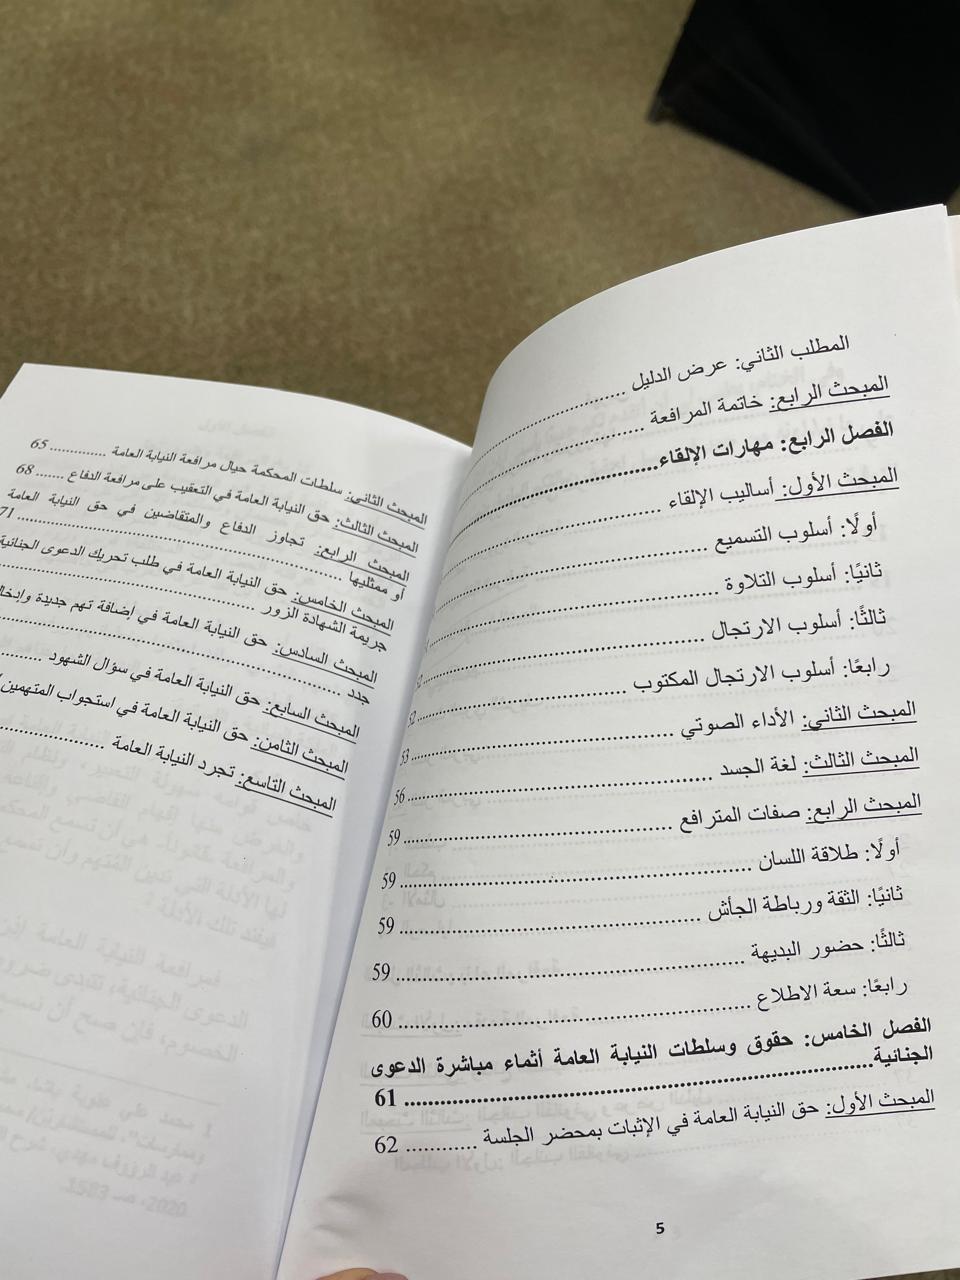 المطلب الثاني: عرض الدليل ......................
المبحث الرابع: خاتمة المرافعة ......................
الفصل الرابع: مهارات الإلقاء......................
المبحث الأول: أساليب الإلقاء ......................
أولًا: أسلوب التسميع ......................
ثانيًا: أسلوب التلاوة ......................
ثالثًا: أسلوب الارتجال ......................
رابعًا: أسلوب الارتجال المكتوب ......................
المبحث الثاني: الأداء الصوتي ...................... 53
المبحث الثالث: لغة الجسد ...................... 56
المبحث الرابع: صفات المترافع ...................... 59
أولًا: طلاقة اللسان ...................... 59
ثانيًا: الثقة ورباطة الجأش ...................... 59
ثالثًا: حضور البديهة ...................... 59
رابعًا: سعة الاطلاع ...................... 60
الفصل الخامس: حقوق وسلطات النيابة العامة أثماء مباشرة الدعوى
الجنائية...................... 61
المبحث الأول: حق النيابة العامة في الإثبات بمحضر الجلسة ............ 62
5
المبحث الثاني: سلطات المحكمة حيال مرافعة النيابة العامة ............. 65
المبحث الثالث: حق النيابة العامة في التعقيب على مرافعة الدفاع ....... 68
المبحث الرابع: تجاوز الدفاع والمتقاضين في حق النيابة العامة
أو ممثليها ...................... 71
المبحث الخامس: حق النيابة العامة في طلب تحريك الدعوى الجنائية
جريمة الشهادة الزور ......................
المبحث السادس: حق النيابة العامة في إضافة تهم جديدة وإدخال
جدد ......................
المبحث السابع: حق النيابة العامة في سؤال الشهود .........
المبحث الثامن: حق النيابة العامة في استجواب المتهمين
المبحث التاسع: تجرد النيابة العامة ......................